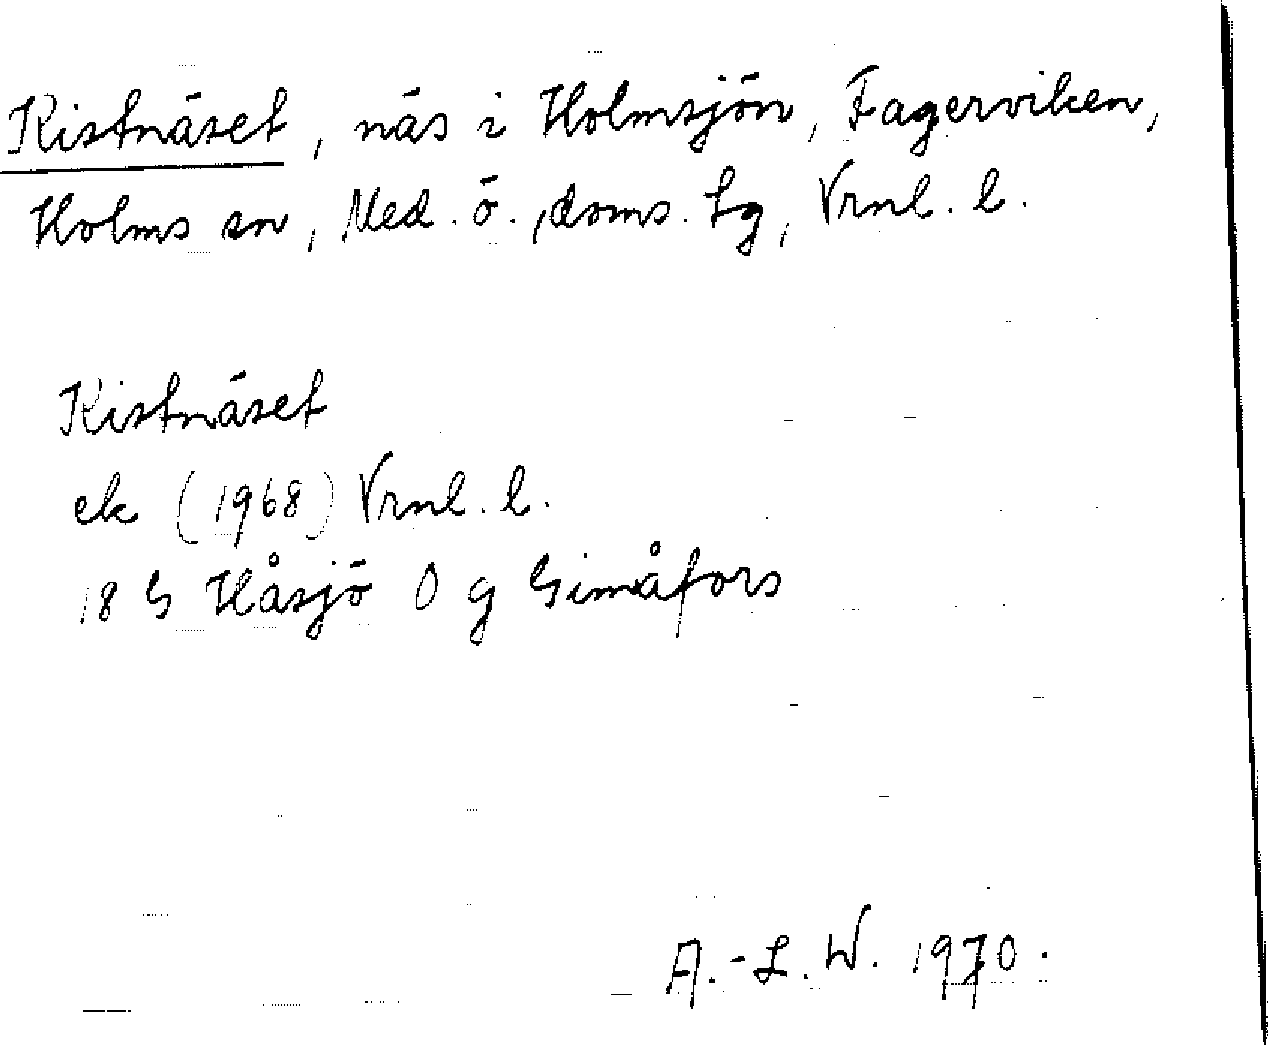 Kistnäset, näs i Holmsjön, Fagerviken,
Holms sn, Med. ö., doms. Lg, Vrnl. l.
Kistnäset
ek (1968) Vrnl. l.
18 G Håsjö O g Gimåfors
A.-L. W. 1970.